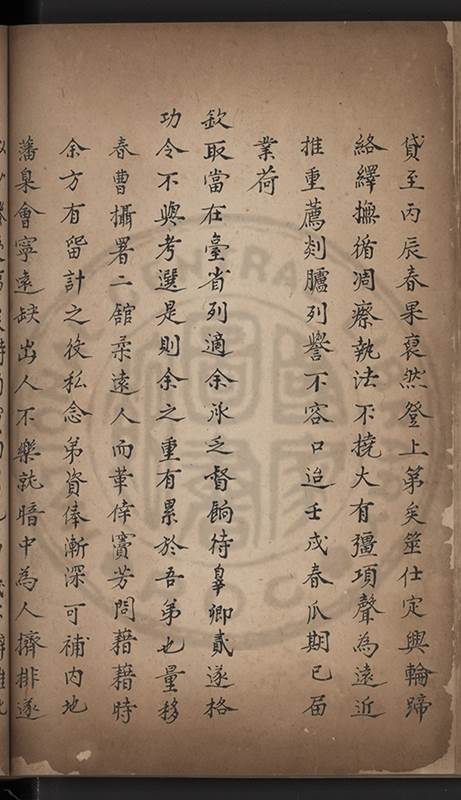 貸至丙辰春果裒然登上第矣筮仕定興輪蹄
絡繹撫循凋瘵執法不撓大有彊項聲為遠近
推重薦剡臚列譽不容口迨壬戌春瓜期已届
業荷
欽取當在臺省列適余承乏督餉待辠卿貳遂格
功令不與考選是則余之重有累於吾弟也量移
春曹攝署二館柔遠人而革倖竇芳問藉藉時
余方有留計之役私念弟資俸漸深可補内地
藩臬會寧遠缺出人不樂就暗中為人擠排遂